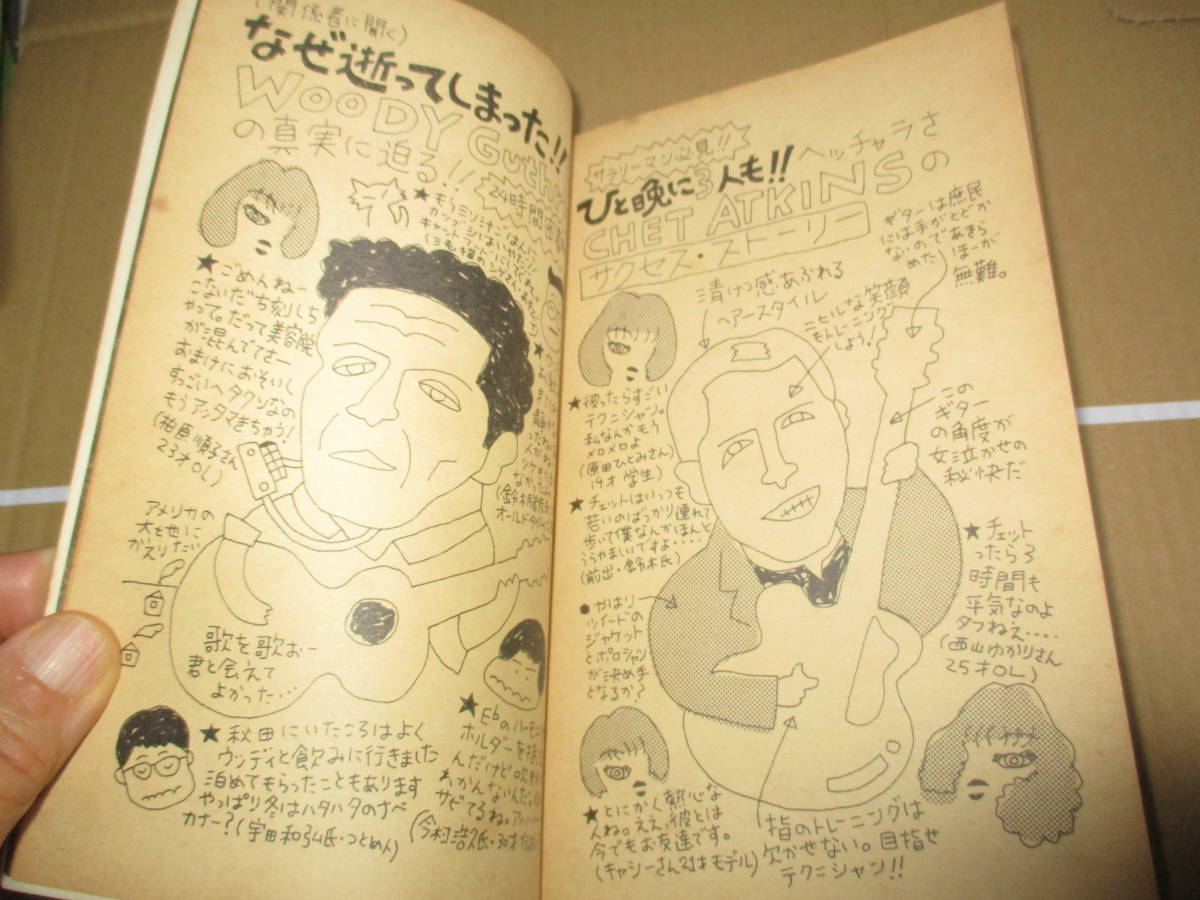 (関係者に聞く)
なぜ逝ってしまった!!
WOODY Guth
の真実に迫る!!
24時間
★もうミソ汁ごはんに
★ごめんねー
こないだち刻しち
ゃって。だって美容院
が混んでてさー
おまけにおそいし
すっごいヘタクソなの
もうアッタマきちゃう!
(柏原順子さん
23才OL)
アメリカの
大を地に
がえりたい
歌を歌おー
君と会えて
よかった…
オールドタイ
★秋田にいたころはよく
ウッディと飲みに行きました
泊めてもらったこともあります
やっぱり冬はハタハタのナベ
カナー?(宇田和弘氏・つとめ人)
★E♭のハーモニ
ホルダーを
んだけど吹き
わかんないんだ。
サビてるね。
(今村浩久氏・30才
サラリーマン必見!!
ひと晩に3人も!!
ヘッチャラさ
CHET ATKINSの
サクセス・ストーリー
ギターは庶民
には手がとどか
ないのであきら
めたほーが
無難。
清けつ感あふれる
ヘアースタイル
ニヒルな笑顔
もトレーニング
しよう!
★彼ったらすごい
テクニシャン。
私なんかもう
メロメロよ
(原田ひとみさん
19才学生)
この
ギター
の角度が
女泣かせの
秘快だ
★チェットはいっつも
若いのばっかり連れて
歩いて僕なんかほんと
うらやましいですよ・・・・
(前出・鈴木氏)
★チェット
ったら3
時間も
平気なのよ
タフねえ・・・・
(西山ゆかりさん
25才OL)
●やはりー
ツイードの
ジャケット
とポロシャツ
が決め手
となるか?
★とにかく熱心な
人ね。ええ、彼とは
今でもお友達です。
(キャシーさん21才モデル)
指のトレーニングは
欠かせない。目指せ
テクニシャン!!